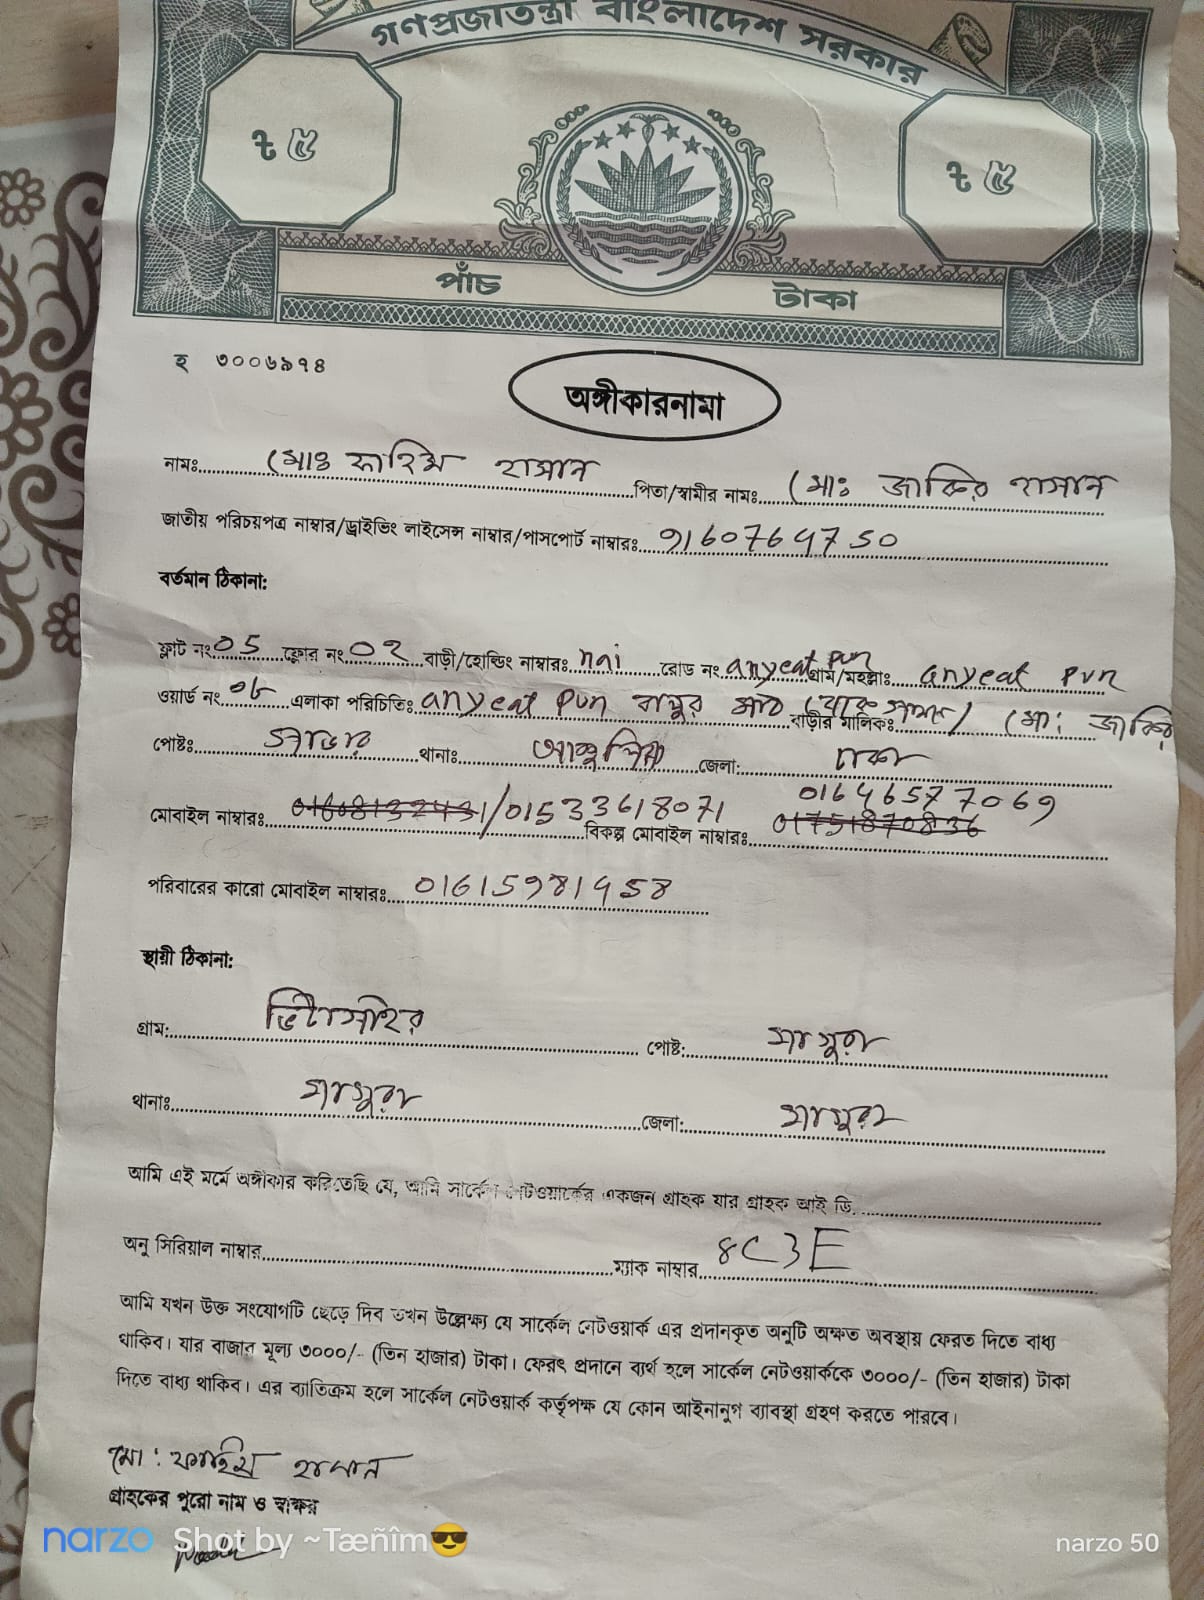 গণপ্রজাতন্ত্রী বাংলাদেশ সরকার
৳ ৫ ৳ ৫
পাঁচ টাকা
হ ৩০০৬৯৭৪
অঙ্গীকারনামা
নামঃ মোঃ ফাহিম হাসান পিতা/স্বামীর নামঃ মোঃ জাকির হাসান
জাতীয় পরিচয়পত্র নাম্বার/ড্রাইভিং লাইসেন্স নাম্বার/পাসপোর্ট নাম্বারঃ
বর্তমান ঠিকানা:
ফ্লাট নংঃ 05 ফ্লোর নংঃ 02 বাড়ী/হোল্ডিং নাম্বারঃ nai রোড নং anyeat pun গ্রাম/মহল্লাঃ anyeat pun
ওয়ার্ড নং এলাকা পরিচিতিঃ anyeat pun বাড়ীর মালিকঃ মোঃ জাকির
পোষ্টঃ সাভার থানাঃ আশুলিয়া জেলা: ঢাকা
মোবাইল নাম্বারঃ /01533618071 01646577069
বিকল্প মোবাইল নাম্বারঃ
পরিবারের কারো মোবাইল নাম্বারঃ
স্থায়ী ঠিকানা:
গ্রাম: পোষ্ট: মাগুরা
থানাঃ মাগুরা জেলা: মাগুরা
আমি এই মর্মে অঙ্গীকার করিতেছি যে, আমি সার্কেল নেটওয়ার্কের একজন গ্রাহক যার গ্রাহক আই ডি.
অনু সিরিয়াল নাম্বার ম্যাক নাম্বার 8C3E
আমি যখন উক্ত সংযোগটি ছেড়ে দিব তখন উল্লেক্ষ্য যে সার্কেল নেটওয়ার্ক এর প্রদানকৃত অনুটি অক্ষত অবস্থায় ফেরত দিতে বাধ্য
থাকিব। যার বাজার মূল্য ৩০০০/- (তিন হাজার) টাকা। ফেরৎ প্রদানে ব্যর্থ হলে সার্কেল নেটওয়ার্ককে ৩০০০/- (তিন হাজার) টাকা
দিতে বাধ্য থাকিব। এর ব্যাতিক্রম হলে সার্কেল নেটওয়ার্ক কর্তৃপক্ষ যে কোন আইনানুগ ব্যাবস্থা গ্রহণ করতে পারবে।
মো: ফাহিম হাসান
গ্রাহকের পুরো নাম ও স্বাক্ষর
narzo Shot by ~Tæñîm😎 narzo 50